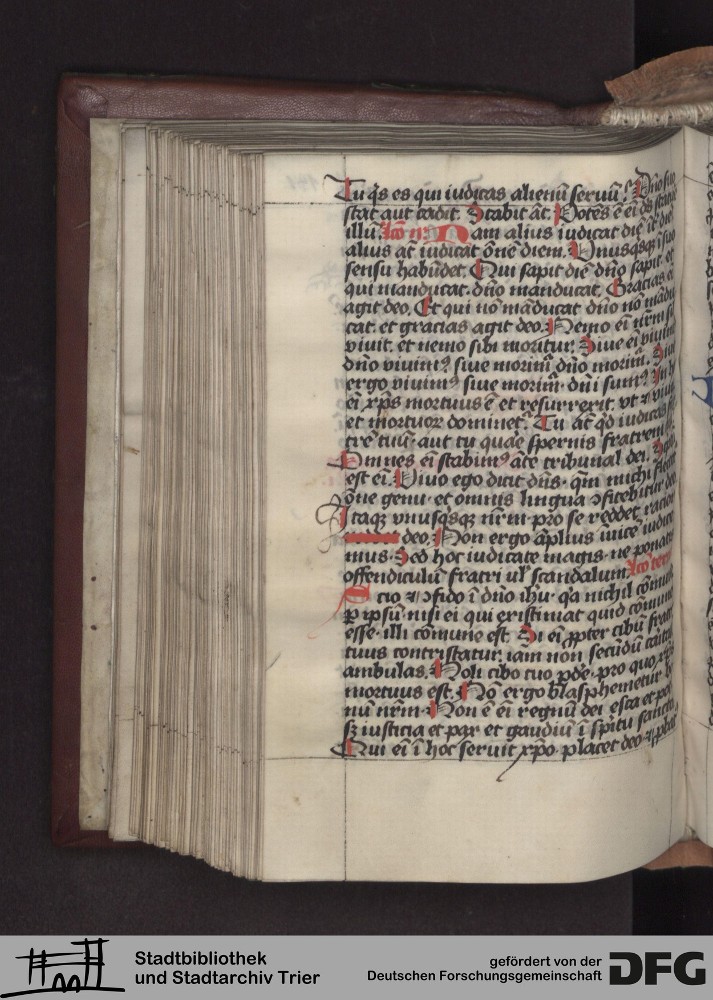 Tu q̄s es qui iudicas alienū seruū? Dn̄o suo
stat aut cadit. Stabit āt. Potēs ē ei ds̄
illū. Nam alius iudicat diē
alius at̄ iudicat ōnē diem. Vnusqsqȝ ī suo
sensu habūdet. Qui sapit diē dn̄o sapit. et
qui manducat. dn̄o manducat. Gracias ei
agit deo. Et qui nō māducat dn̄o nō mādu
cat. et gracias agit deo. Nemo ei nr̄m si
viuit. et nemo sibi moritur. Siue ei viuim
dn̄o viuimꝰ siue morim̄ dn̄o morim̄.
ergo viuimꝰ siue morim̄. dn̄i sumꝰ. In h
ei xp̄s mortuus ē et resurrexit. vt
et mortuoꝝ dominet̄. Tu at̄ qd iudicas
trē tuū. aut tu quare spernis fratrem
Omnes ei stabimꝰ āte tribunal dei.
est ei. Viuo ego dicit dn̄s. qm̄ michi flectet
ōne genu. et omnis lingua ꝯfitebitur deo
Itaqȝ vnusqsqȝ nr̄m. pro se reddet racio
deo. Non ergo āplius inuicē iudice
mus. Sed hoc iudicate magis. ne ponatis
offendiculū fratri ul̄ scandalum.
Scio ⁊ ꝯfido ī dn̄o ihu. qa nichil cōmune
ꝑ ipsū. nisi ei qui existimat quid cōmune
esse. illi cōmune est. Si ei ꝓpter cibū frater
tuus contristatur. iam non secūdū caritatē
ambulas. Noli cibo tuo pd̄e. pro quo xp̄s
mortuus est. Nō ergo blasphemetur bo
nū nr̄m. Non ē ei regnū dei esca et pot
sȝ iusticia et pax et gaudiū ī spiritu sancto.
Qui ei ī hoc seruit xp̄o. placet deo.
Stadtbibliothek
und Stadtarchiv Trier
gefördert von der
Deutschen Forschungsgemeinschaft
DFG